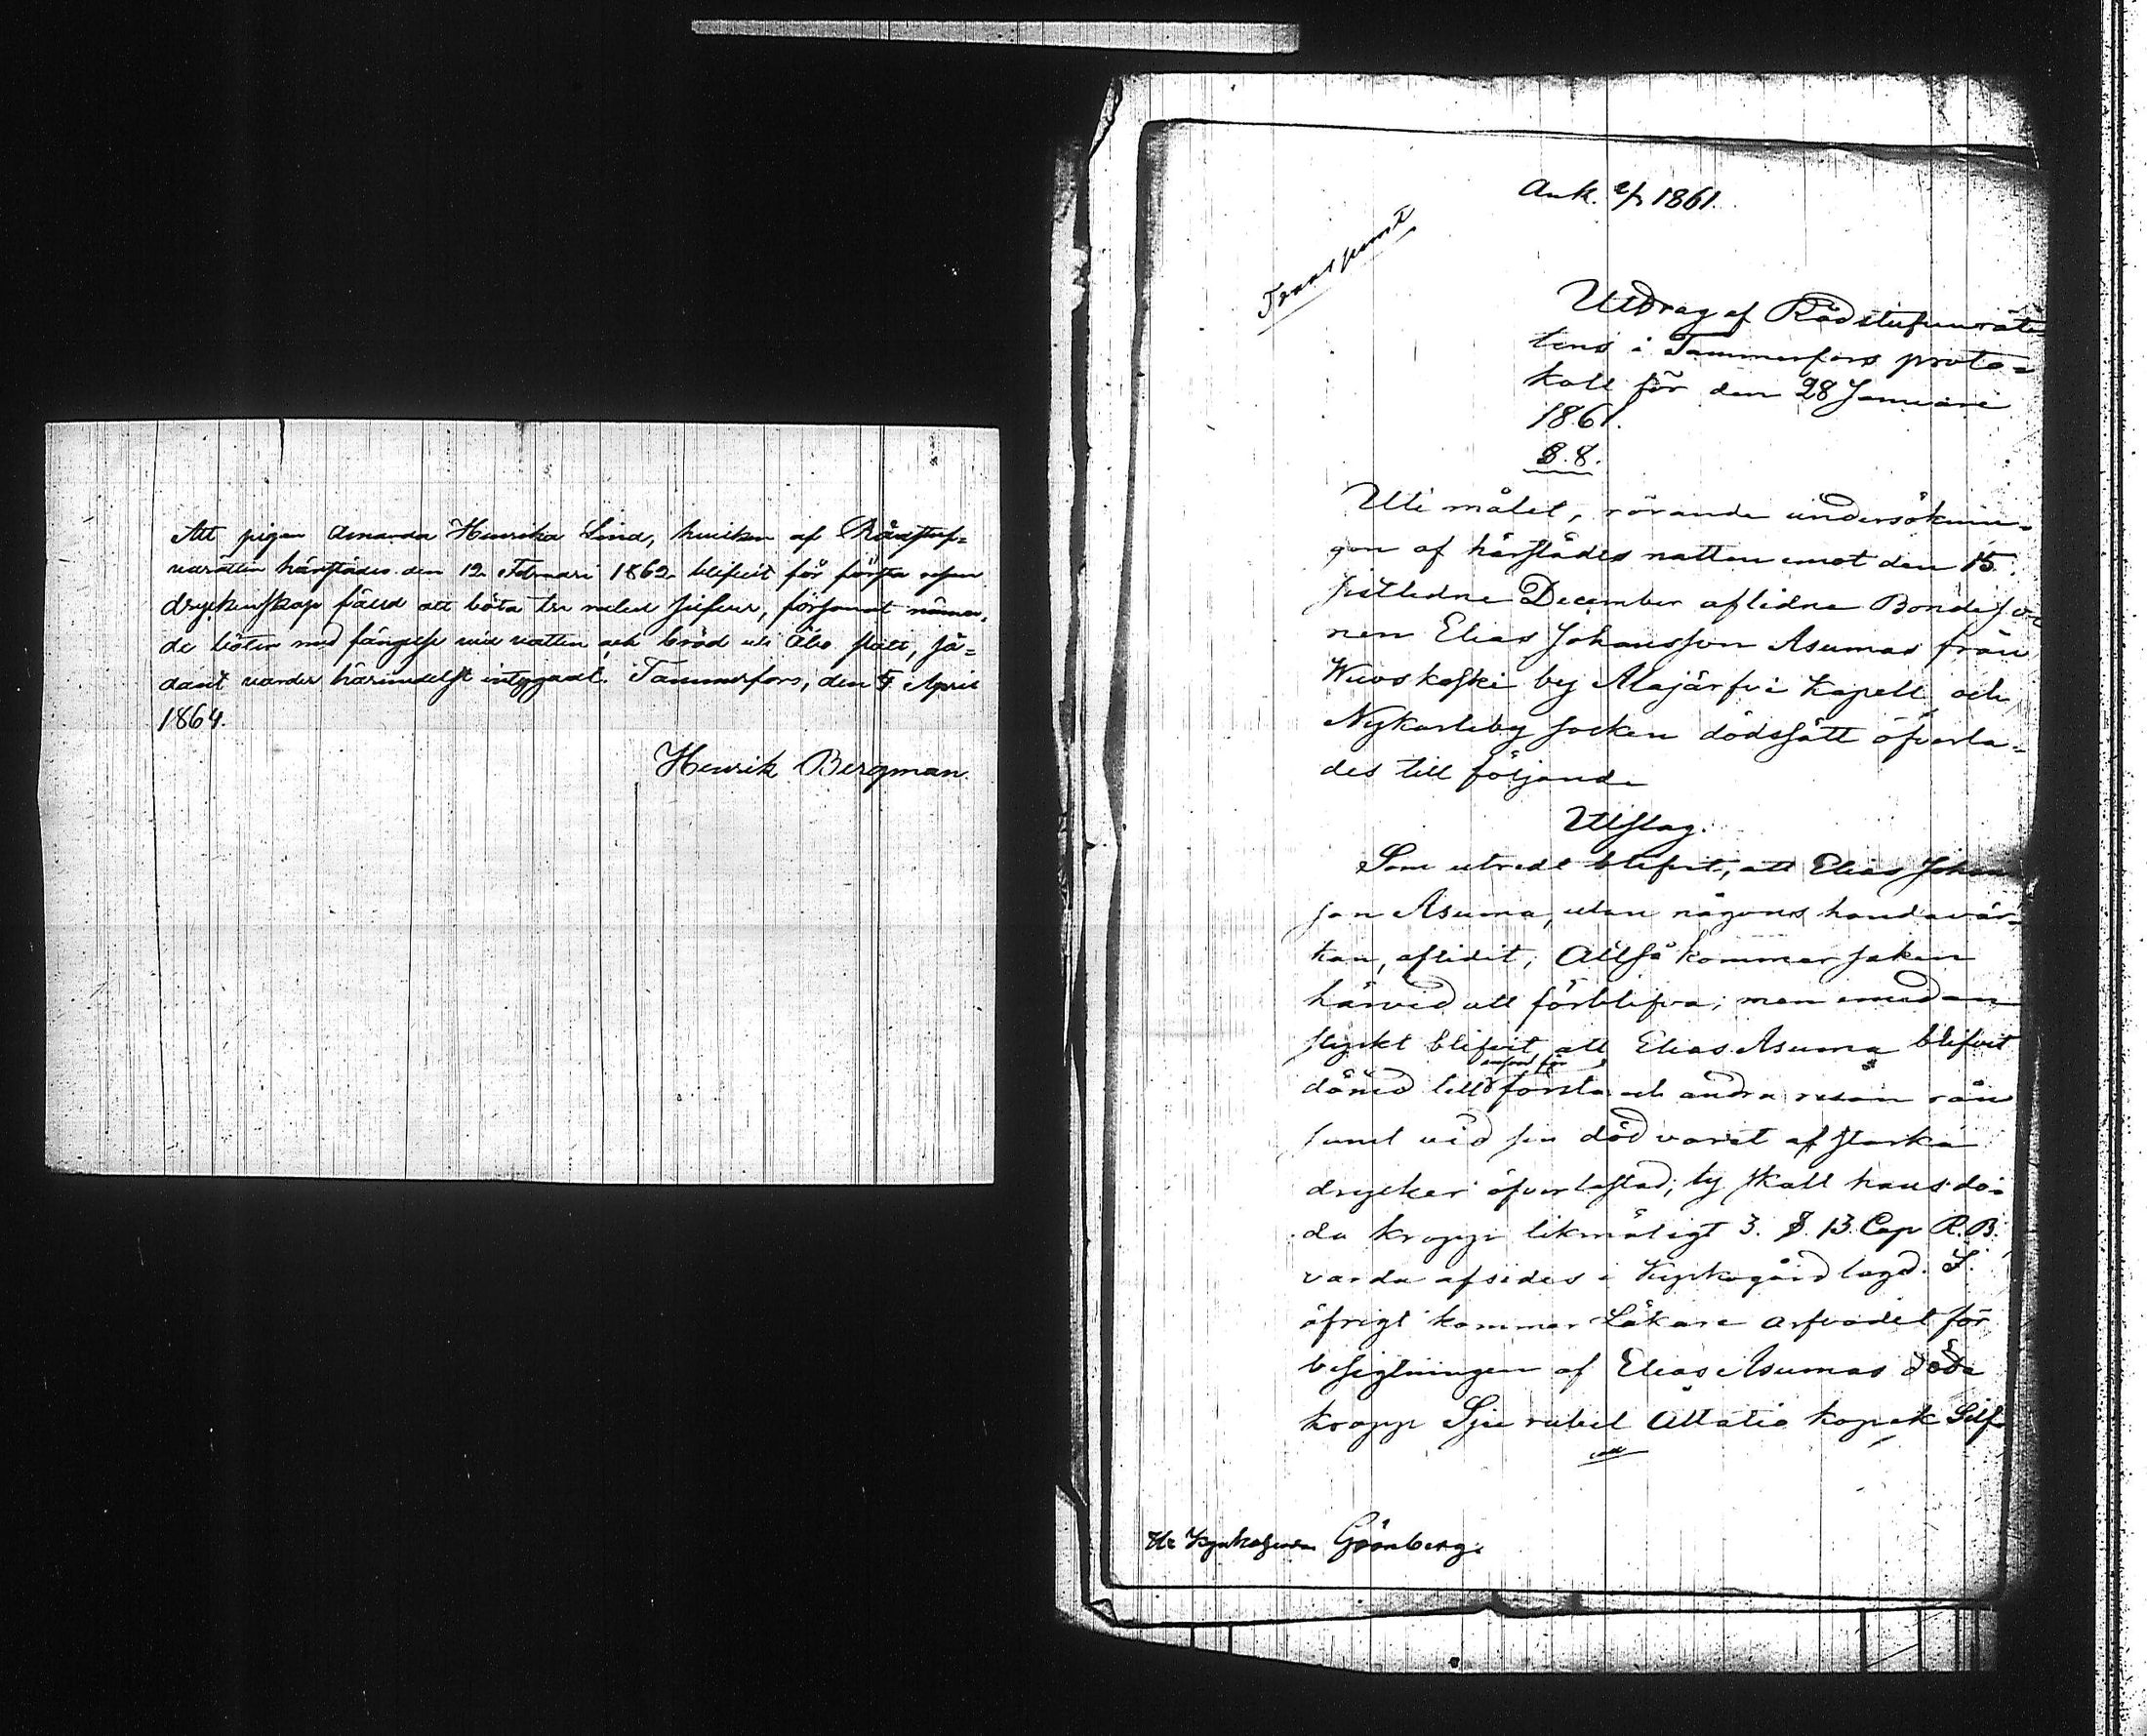 Att pigan Amanda Henrika Lind, hvilken af Rådstuf-
vurätten härstädes den 12 Februari 1862 blifvit för första resan
dryckenskap fälld att böta tre rubel silfver, försonat nämn-
de böter med fängelse vid vatten och bröd uti Åbo slott, så-
dant varder härmedelst intygadt. Tammerfors, den April
1864.
Henrik Bergman.
Ank. 1861.
Transsumt
Utdrag af Rådstufvurät-
tens i Tammerfors proto-
koll för den 28 Januari
1861.
§. 8.
Uti målet, rörande undersöknin-
gen af härstädes natten emot den 15
sistledne December aflidne Bondeso-
nen Elias Johansson Asumas från
Kuoskoski by Alajärfvi Kapell och
Nykarleby socken dödssätt öfverla-
des till följande
Utslag.
Som utredt blifvit, att Elias Johans
son Asuma, utan någons handaver-
kan, aflidit; Alltså kommer saken
härvid att förblifva; men emedan
styrkt blifvit att Elias Asuma blifvit
dömd till första och andra resan rån
samt vid sin död varit af starka
drycker öfverlastad; ty skall hans dö-
da kropp likmätigt 3. §. 13. Cap R.B.
varda afsides i Kyrkogård lagd. I
öfrigt kommer Läkare arfvodet för
besigtningen af Elias Asumas döda
kropp Sju rubel Åttatio kopek Silf
Hr Kyrkoherden Grönberg.